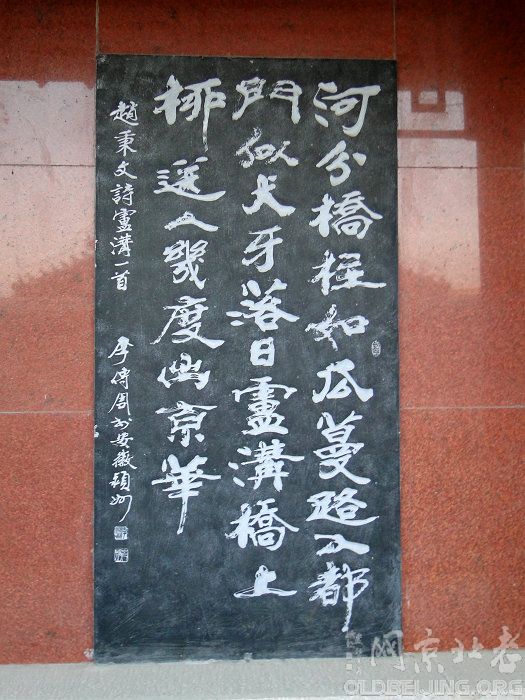 河分橋柱如瓜蔓路入都
門似犬牙落日盧溝橋上
柳送人幾度出京華
趙秉文詩盧溝一首
李傳周书安徽潁州
网京北老
OLDBEIJING.ORG